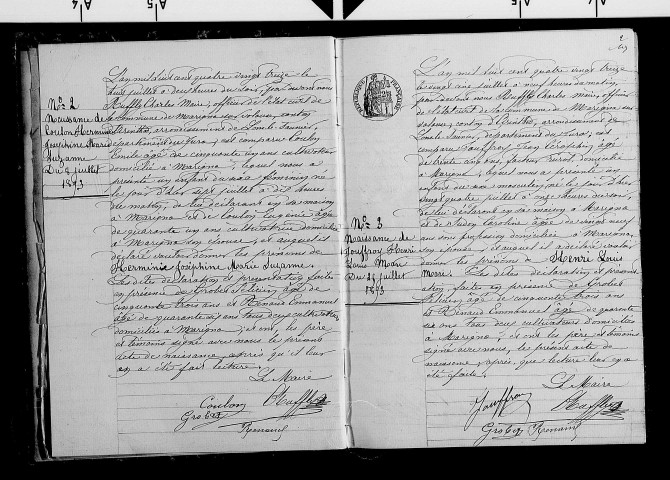 No 2
Naissance de
Coulon Herminie
Joséphine Marie
Suzanne
Du 8 juillet
1893
L'an mil huit cent quatre vingt treize le
huit juillet à deux heures du soir, par devant nous
Maire, officier de l'état civil de
la commune de Marigna sur valouse, canton
d'Arinthod, arrondissement de Lons le Saunier,
département du Jura, est comparu Coulon
Emile âgé de cinquante un ans cultivateur
domicilié à Marigna, lequel nous a
présenté un enfant du sexe féminin né
le jour d'hier sept juillet à dix heures
du matin, de lui déclarant en sa maison
à Marigna et de Coulon Eugénie âgée
de quarante un ans cultivatrice domiciliée
à Marigna son épouse; et auquel il a
déclaré vouloir donner les prénoms de
Herminie Joséphine Marie Suzanne.
Les dites déclaration et présentation faites
en présence de Grobet âgé de
cinquante trois ans et Renaud Emmanuel
âgé de quarante six ans tous deux cultivateurs
domiciliés à Marigna; et ont, les père
et témoins signé avec nous le présent
acte de naissance, après qu'il leur
en a été fait lecture.
Le Maire
Coulon
Grobet
Renaud
2
RÉPUBLIQUE FRANÇAISE
No 3
Naissance de
Jouffroy Henri
Louis Marie
Du 25 juillet
1893
L'an mil huit cent quatre vingt treize
le vingt cinq juillet à neuf heures du matin,
par devant nous Maire, officier
de l'état civil de la commune de Marigna sur
valouse, canton d'Arinthod, arrondissement de
Lons le Saunier, département du Jura, est
comparu Jouffroy
de trente cinq ans, facteur rural, domicilié
à Marigna, lequel nous a présenté un
enfant du sexe masculin, né le jour d'hier
vingt quatre juillet à heures du soir,
de lui déclarant en sa maison à Marigna
et de Caroline âgée de vingt neuf
ans son profession domiciliée à Marigna
son épouse; et auquel il a déclaré vouloir
donner les prénoms de Henri Louis
Marie. Les dites déclaration et présen-
tation faites en présence de Grobet
âgé de cinquante trois ans
et Renaud Emmanuel âgé de quarante
six ans tous deux cultivateurs domiciliés
à Marigna; et ont les père et témoins
signé avec nous, le présent acte de
naissance, après que lecture leur en a
été faite.
Le Maire
Jouffroy
Grobet Renaud